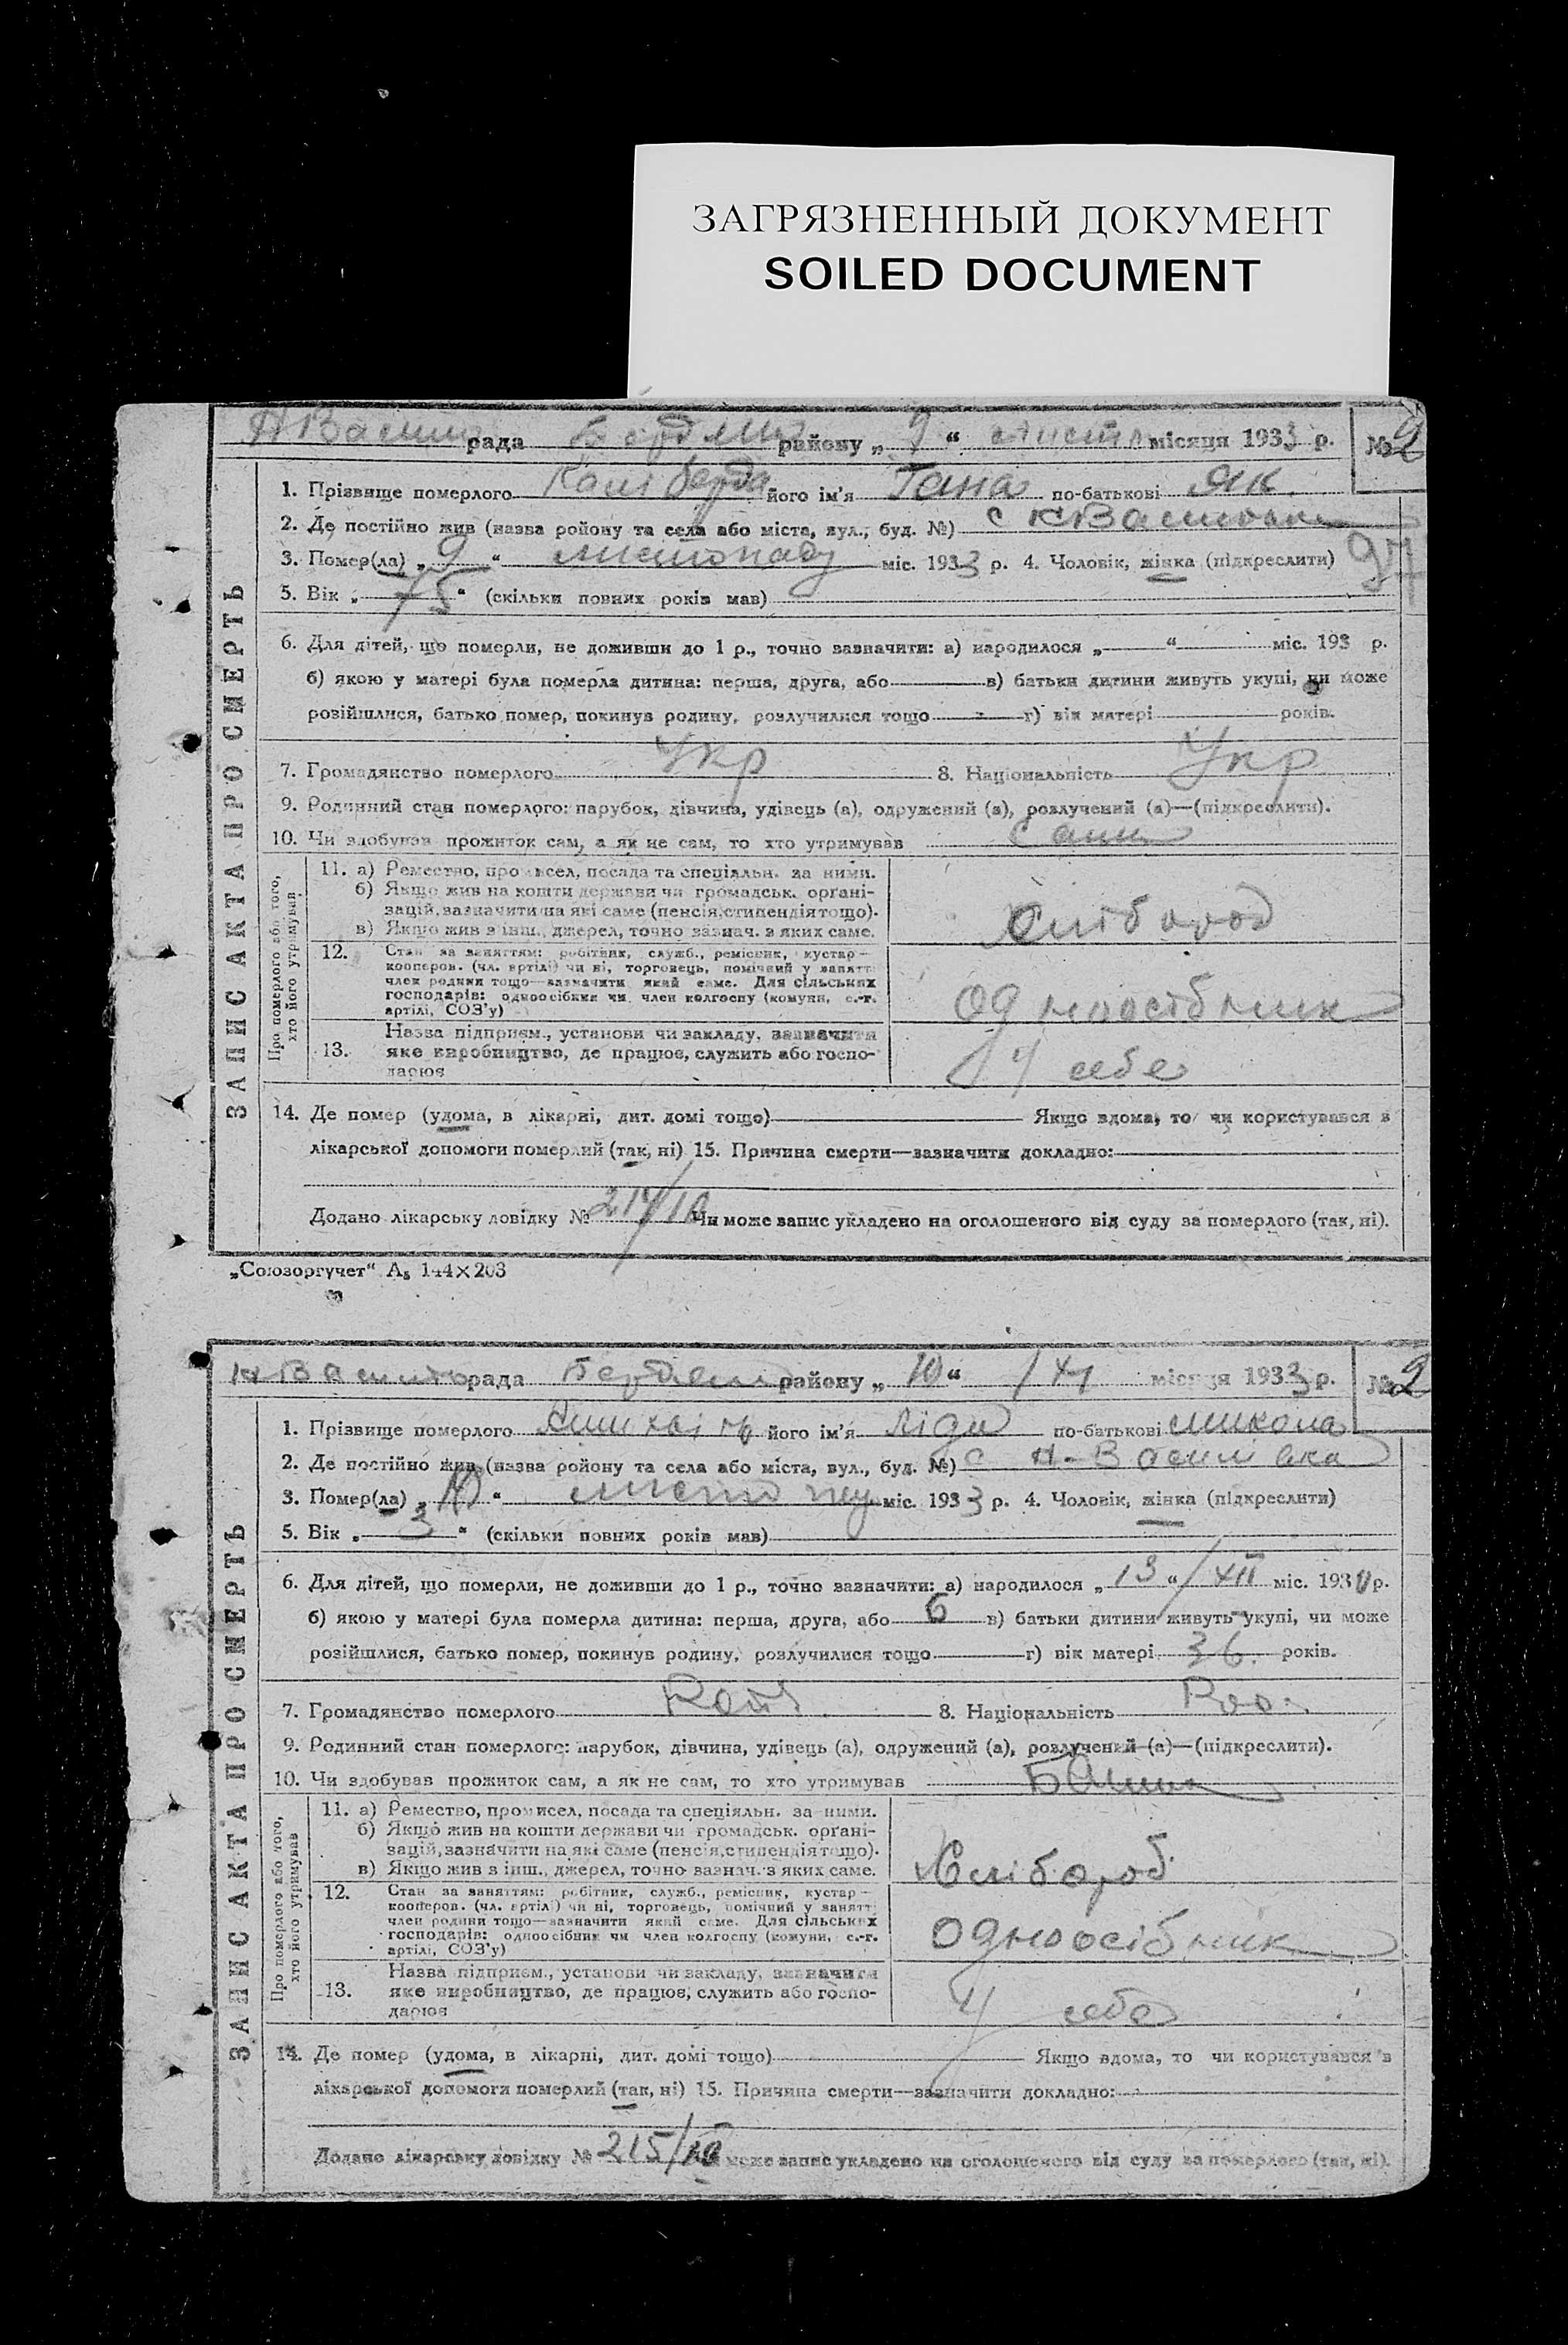 ЗАГРЯЗНЕННЫЙ ДОКУМЕНТ
SOILED DOCUMENT
рада району „ 9 “ місяця 1933 р. №
ЗАПИС АКТА ПРО СМЕРТЬ
1. Прізвище померлого його ім'я Гана по-батькові Як.
2. Де постійно жив (назва ройону та села або міста, вул., буд. №) с
3. Помер(ла) „ 9 “ листопаду міс. 1933 р. 4. Чоловік, жінка (підкреслити) 97
5. Вік „ 75 “ (скільки повних років мав)
6. Для дітей, що померли, не доживши до 1 р., точно зазначити: а) народилося „ “ міс. 193 р.
б) якою у матері була померла дитина: перша, друга, або в) батьки дитини живуть укупі, чи може
розійшлися, батько помер, покинув родину, розлучилися тощо г) вік матері років.
7. Громадянство померлого Укр 8. Національність Укр
9. Родинний стан померлого: парубок, дівчина, удівець (а), одружений (а), розлучений (а)—(підкреслити).
10. Чи здобував прожиток сам, а як не сам, то хто утримував
Про померлого або того,
хто його утримував
11. а) Ремество, промисел, посада та спеціяльн. за ними.
б) Якщо жив на кошти держави чи громадськ. орґані-
зацій, зазначити на які саме (пенсія, стипендія тощо).
в) Якщо жив з інш., джерел, точно зазнач. з яких саме.
Хлібороб
12. Стан за заняттям: робітник, служб., ремісник, кустар—
кооперов. (чл. артілі) чи ні, торговець, помічний у занятті
член родини тощо—зазначити який саме. Для сільських
господарів: одноосібник чи член колгоспу (комуни, с.-г.
артілі, СОЗ'у)
Одноосібник
13. Назва підприєм., установи чи закладу, зазначити
яке виробництво, де працює, служить або госпо-
дарює
У себе
14. Де помер (удома, в лікарні, дит. домі тощо) Якщо вдома, то чи користувався з
лікарської допомоги померлий (так, ні) 15. Причина смерти—зазначити докладно:
Додано лікарську довідку № 214/10 Чи може запис укладено на оголошеного від суду за померлого (так, ні).
„Союзоргучет“ А₅ 144×203
рада району „ 10 “ місяця 1933 р. № 2
ЗАПИС АКТА ПРО СМЕРТЬ
1. Прізвище померлого його ім'я Ліда по-батькові Микола
2. Де постійно жив (назва ройону та села або міста, вул., буд. №) с Н-Василівка
3. Помер(ла) „ 10 “ міс. 1933 р. 4. Чоловік, жінка (підкреслити)
5. Вік „ 3 “ (скільки повних років мав)
6. Для дітей, що померли, не доживши до 1 р., точно зазначити: а) народилося „ 13 “/XII міс. 1930 р.
б) якою у матері була померла дитина: перша, друга, або 6 в) батьки дитини живуть укупі, чи може
розійшлися, батько помер, покинув родину, розлучилися тощо г) вік матері 36. років.
7. Громадянство померлого 8. Національність
9. Родинний стан померлого: парубок, дівчина, удівець (а), одружений (а), розлучений (а)—(підкреслити).
10. Чи здобував прожиток сам, а як не сам, то хто утримував
Про померлого або того,
хто його утримував
11. а) Ремество, промисел, посада та спеціяльн. за ними.
б) Якщо жив на кошти держави чи громадськ. орґані-
зацій, зазначити на які саме (пенсія, стипендія тощо).
в) Якщо жив з інш., джерел, точно зазнач. з яких саме.
Хлібороб
12. Стан за заняттям: робітник, служб., ремісник, кустар—
кооперов. (чл. артілі) чи ні, торговець, помічний у занятті
член родини тощо—зазначити який саме. Для сільських
господарів: одноосібник чи член колгоспу (комуни, с.-г.
артілі, СОЗ'у)
Одноосібник
13. Назва підприєм., установи чи закладу, зазначити
яке виробництво, де працює, служить або госпо-
дарює
У себе
14. Де помер (удома, в лікарні, дит. домі тощо) Якщо вдома, то чи користувався з
лікарської допомоги померлий (так, ні) 15. Причина смерти—зазначити докладно:
Додано лікарську довідку № 215/10 може запис укладено на оголошеного від суду за померлого (так, ні).